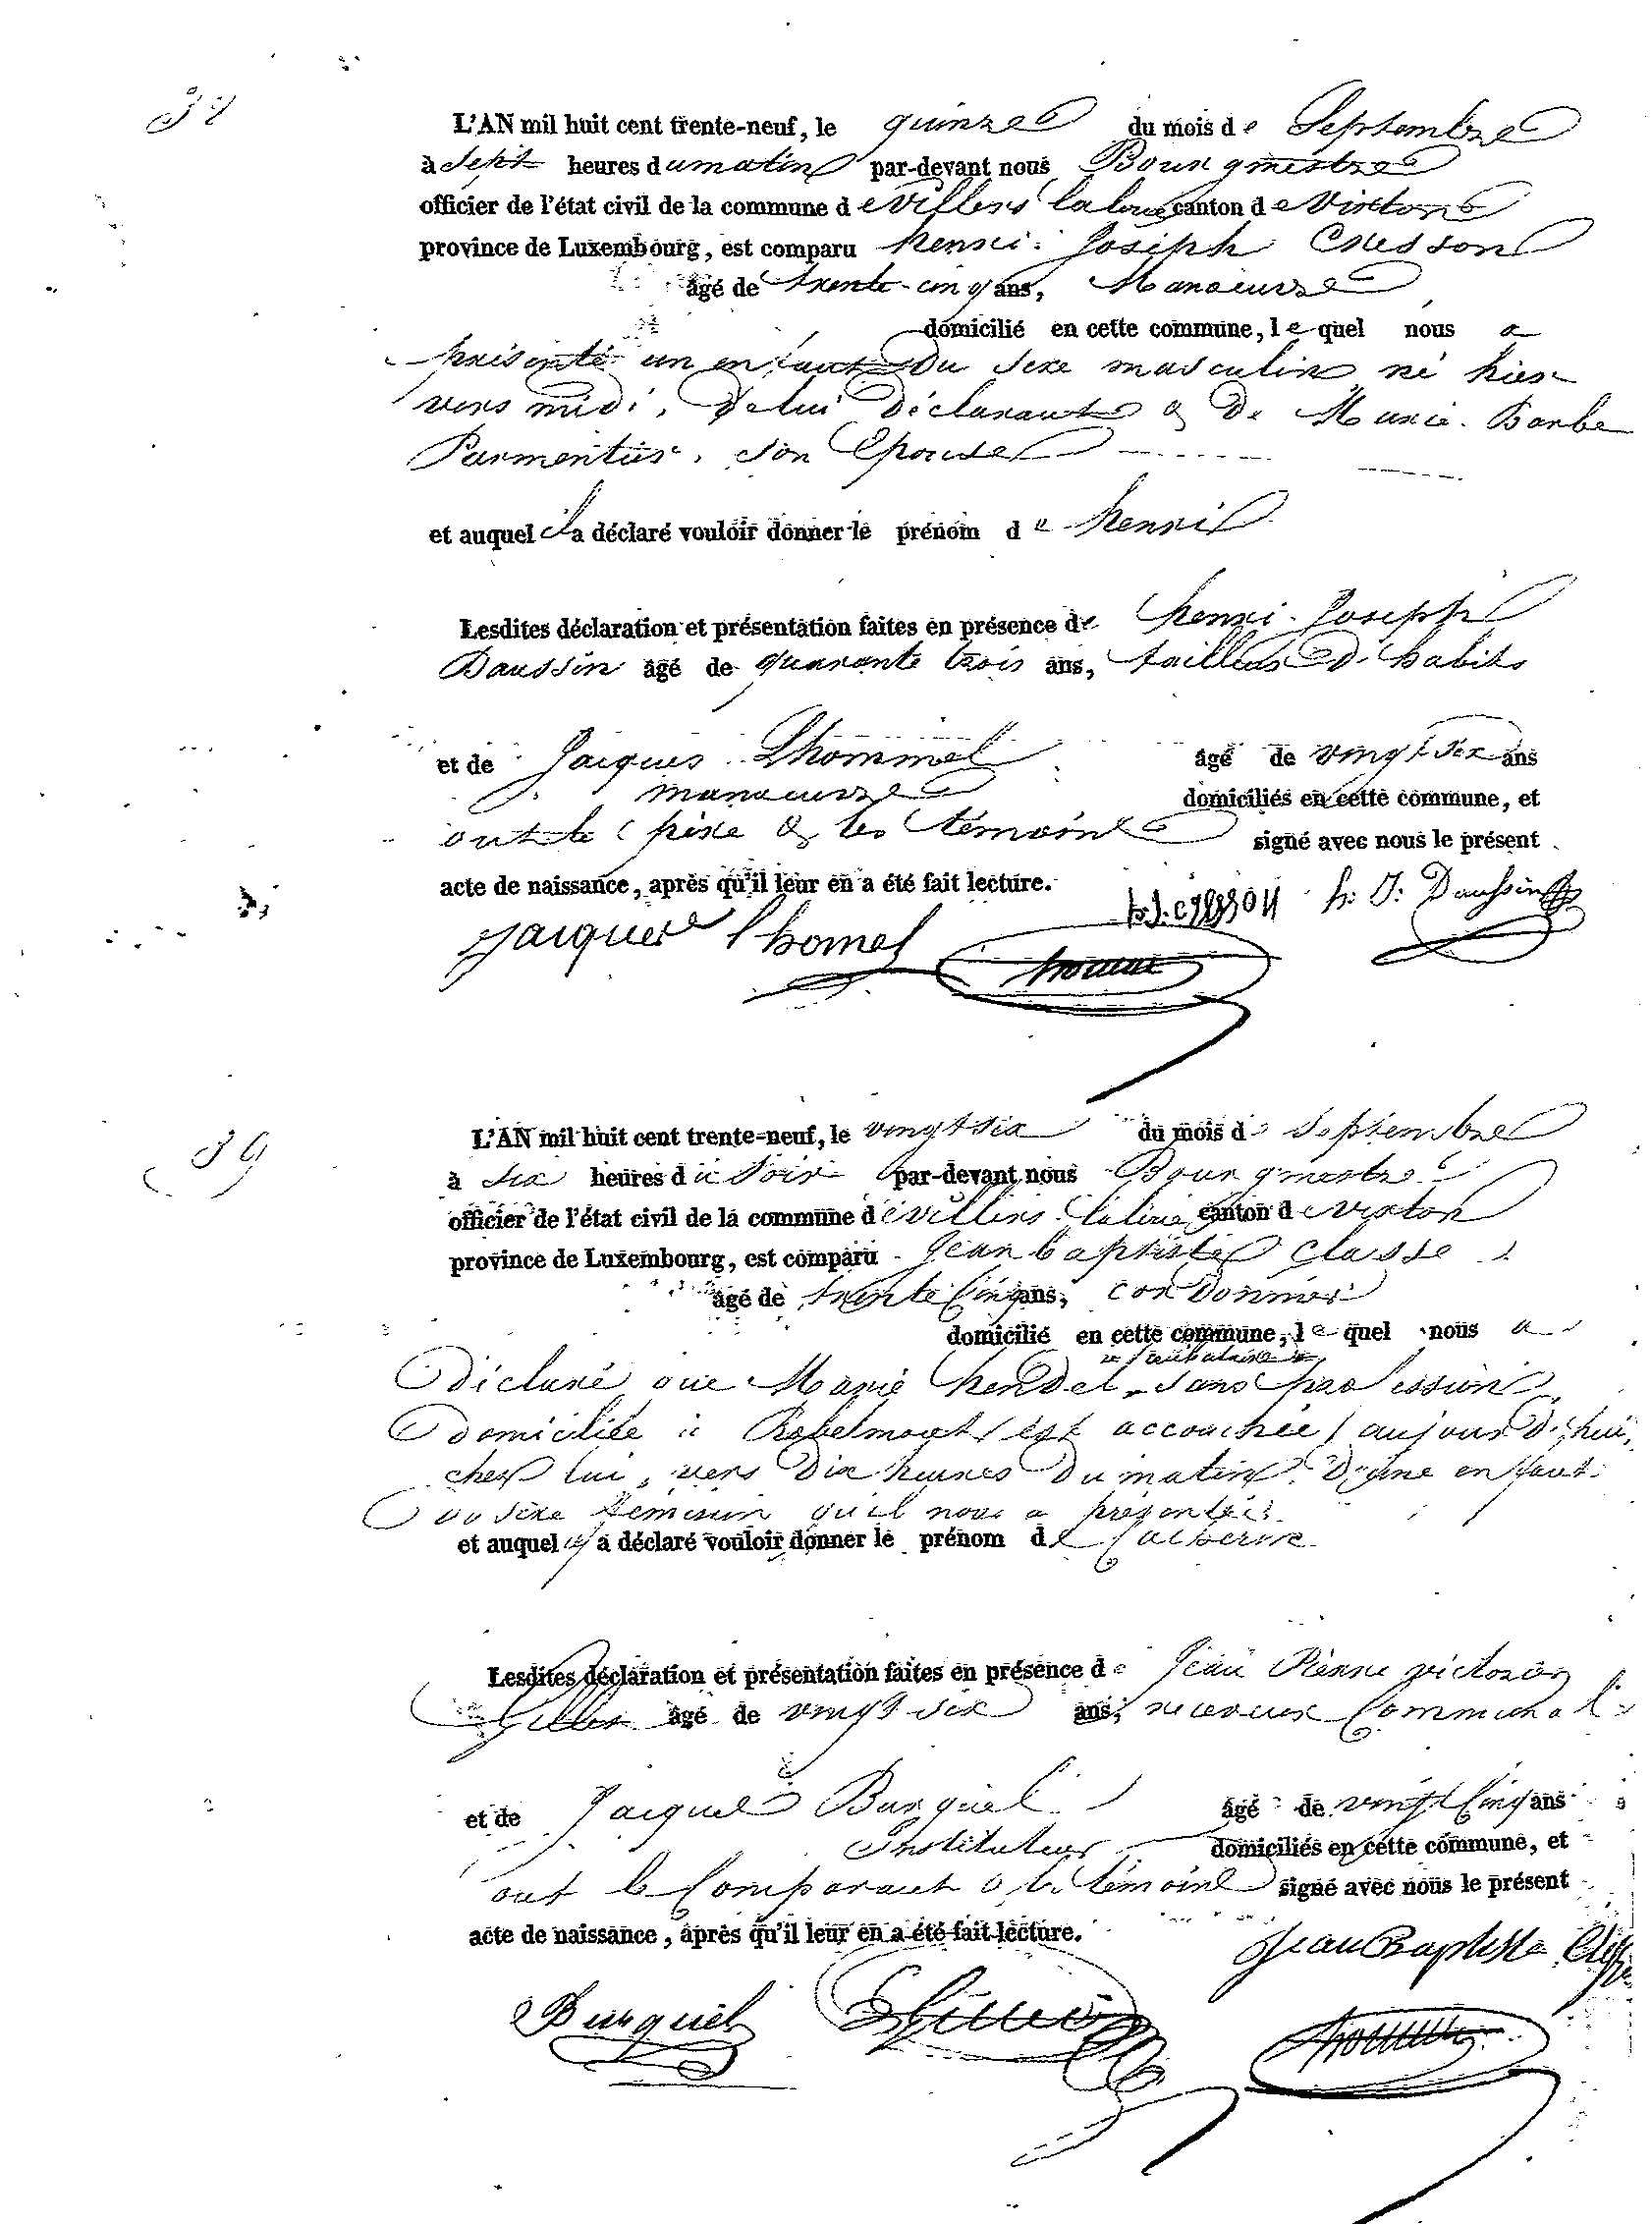 38
L'AN mil huit cent trente-neuf, le quinze du mois de Septembre
à Sept heures du matin par-devant nous Bourgmestre
officier de l'état civil de la commune de Villers laloue canton de Virton
province de Luxembourg, est comparu henri Joseph Cresson
âgé de trente-cinq ans, Manoeuvre
domicilié en cette commune, le quel nous a
présenté un enfant Du Sexe masculin né hier
vers midi, De lui Déclarant & De Marie Barbe
Parmentier, Son Epouse
et auquel il a déclaré vouloir donner le prénom de henri
Lesdites déclaration et présentation faites en présence de henri Joseph
Daussin âgé de quarante trois ans, tailleur D'habits
et de Jacques Lhommel âgé de vingt Six ans
manoeuvre domiciliés en cette commune, et
ont le père & les témoins signé avec nous le présent
acte de naissance, après qu'il leur en a été fait lecture.
h. J. Daussin
h.J. cresson
Jacques lhomel
39
L'AN mil huit cent trente-neuf, le vingt six du mois de Septembre
à Six heures du Soir par-devant nous Bourgmestre
officier de l'état civil de la commune de Villers laloue canton de Virton
province de Luxembourg, est comparu Jean baptiste Classe
âgé de trente Cinq ans, Cordonnier
domicilié en cette commune, le quel nous a
célibataire
Déclaré que Marie hendel, Sans profession
Domiciliée à Robelmont est accouchée aujourd'hui,
chez lui, vers Dix heures Du matin, D'une enfant
Du Sexe féminin qu'il nous a présenté
et auquel il a déclaré vouloir donner le prénom de Catherine
Lesdites déclaration et présentation faites en présence de Jean Pierre victorien
Gilles âgé de vingt six ans, receveur Communal
et de Jacques Burquel âgé de vingt Cinq ans
Instituteur domiciliés en cette commune, et
ont le Comparant & les témoins signé avec nous le présent
acte de naissance, après qu'il leur en a été fait lecture.
Jean Baptiste Classe
Burquel